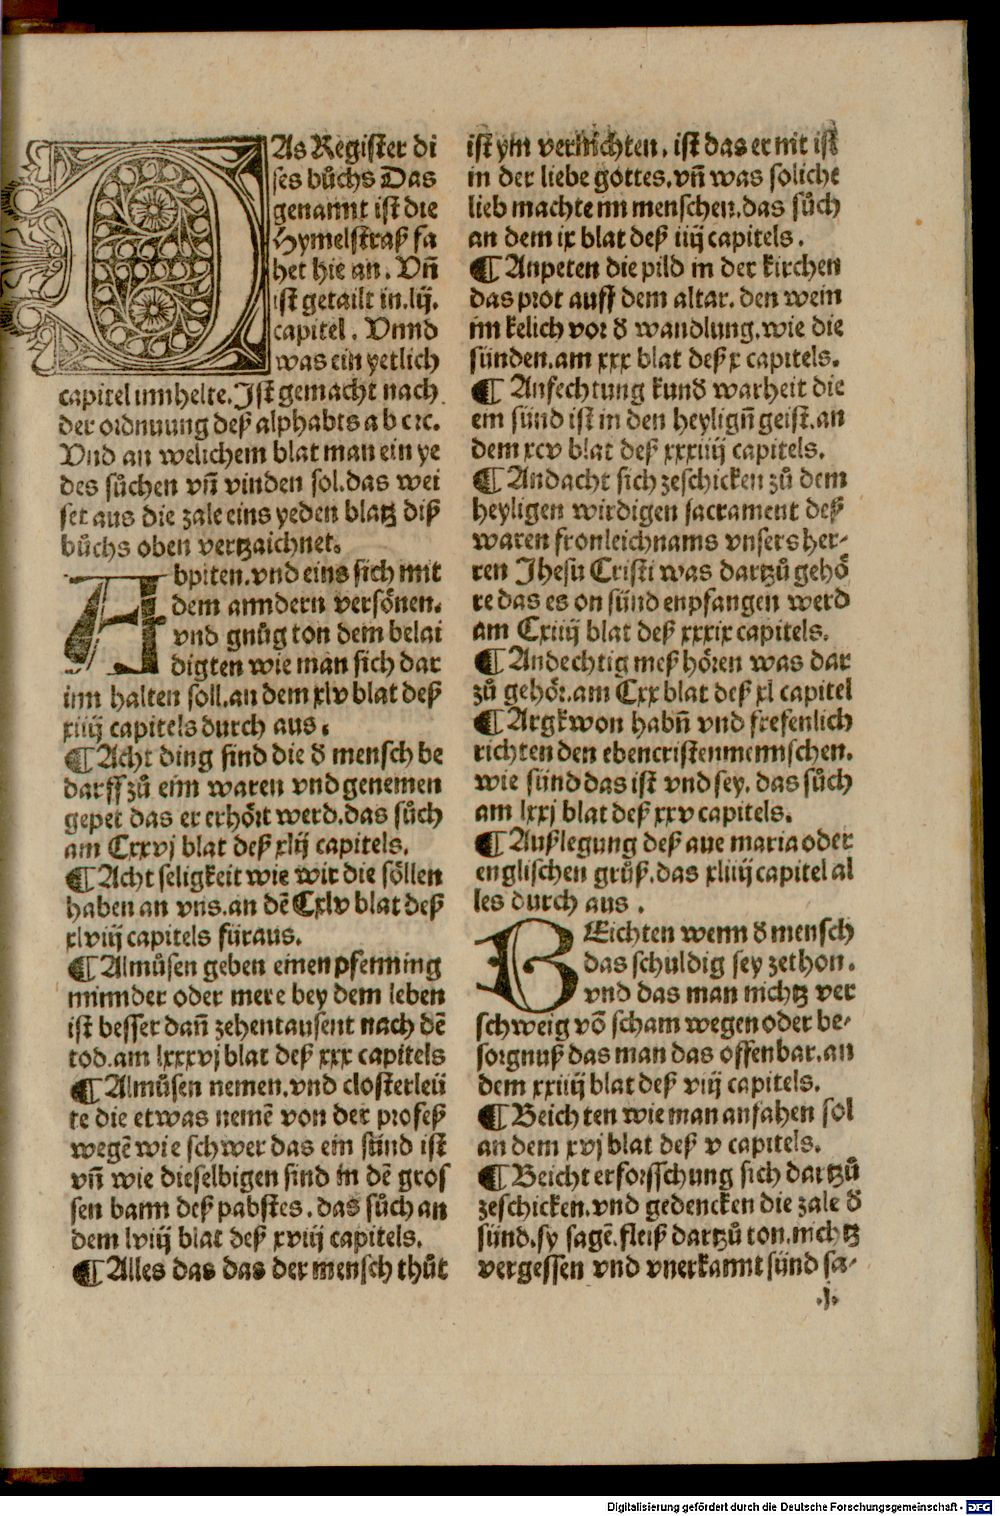 DAs Register di
ses bůchs Das
genannt ist die
Hymelstraß fa
het hie an. Vnñ
ist getailt in.lij.
capitel. Vnnd
was ein yetlich
capitel innhelte. Jst gemacht nach
der ordnuung deß alphabts a b c ⁊c.
Vnd an welichem blat man ein ye
des sůchen vñ vinden sol.das wei
set aus die zale eins yeden blatz diß
bůchs oben vertzaichnet.
Abpiten.vnd eins sich mit
dem anndern versönen.
vnd gnůg ton dem belai
digten wie man sich dar
inn halten soll.an dem xlv blat deß
xiiij capitels durch aus.
¶ Acht ding sind die d̕ mensch be
darff zů eim waren vnd genemen
gepet das er erhört werd.das sůch
am Cxxvj blat deß xlij capitels.
¶ Acht seligkeit wie wir die söllen
haben an vns.an dē Cxlv blat deß
xlviij capitels füraus.
¶ Almůsen geben einen pfenning
minnder oder mere bey dem leben
ist besser dañ zehentausent nach dē
tod.am lxxxvj blat deß xxx capitels
¶ Almůsen nemen.vnd closterleü
te die etwas nemē von der profeß
wegē wie schwer das ein sünd ist
vñ wie dieselbigen sind in dē gros
sen bann deß pabstes.das sůch an
dem lviij blat deß xviij capitels.
¶ Alles das das der mensch thůt
ist ym vernichten.ist das er nit ist
in der liebe gottes.vñ was soliche
lieb machte im menschen.das sůch
an dem ix blat deß iiij capitels.
¶ Anpeten die pild in der kirchen
das prot auff dem altar.den wein
im kelich vor d̕ wandlung.wie die
sünden.am xxx blat deß x capitels.
¶ Anfechtung kund̕ warheit die
ein sünd ist in den heyligñ geist.an
dem xcv blat deß xxxiiij capitels.
¶ Andacht sich zeschicken zů dem
heyligen wirdigen sacrament deß
waren fronleichnams vnsers her-
ren Jhesu Cristi was dartzů gehö
re das es on sünd enpfangen werd
am Cxiiij blat deß xxxix capitels.
¶ Andechtig meß hören was dar
zů gehör.am Cxx blat deß xl capitel
¶ Argkwon habñ vnd frefenlich
richten den ebencristenmennschen.
wie sünd das ist vnd sey.das sůch
am lxxj blat deß xxv capitels.
¶ Außlegung deß aue maria oder
englischen grůß.das xliiij capitel al
les durch aus.
BEichten wenn d̕ mensch
das schuldig sey zethon.
vnd das man nichtz ver
schweig vō scham wegen oder be-
sorgnuß das man das offenbar.an
dem xxiiij blat deß viij capitels.
¶ Beichten wie man anfahen sol
an dem xvj blat deß v capitels.
¶ Beicht erforsschung sich dartzů
zeschicken.vnd gedencken die zale d̕
sünd.sy sagē.fleiß dartzů ton.nichtz
vergessen vnd vnerkannt sünd sa-
.j.
Digitalisierung gefördert durch die Deutsche Forschungsgemeinschaft - DFG